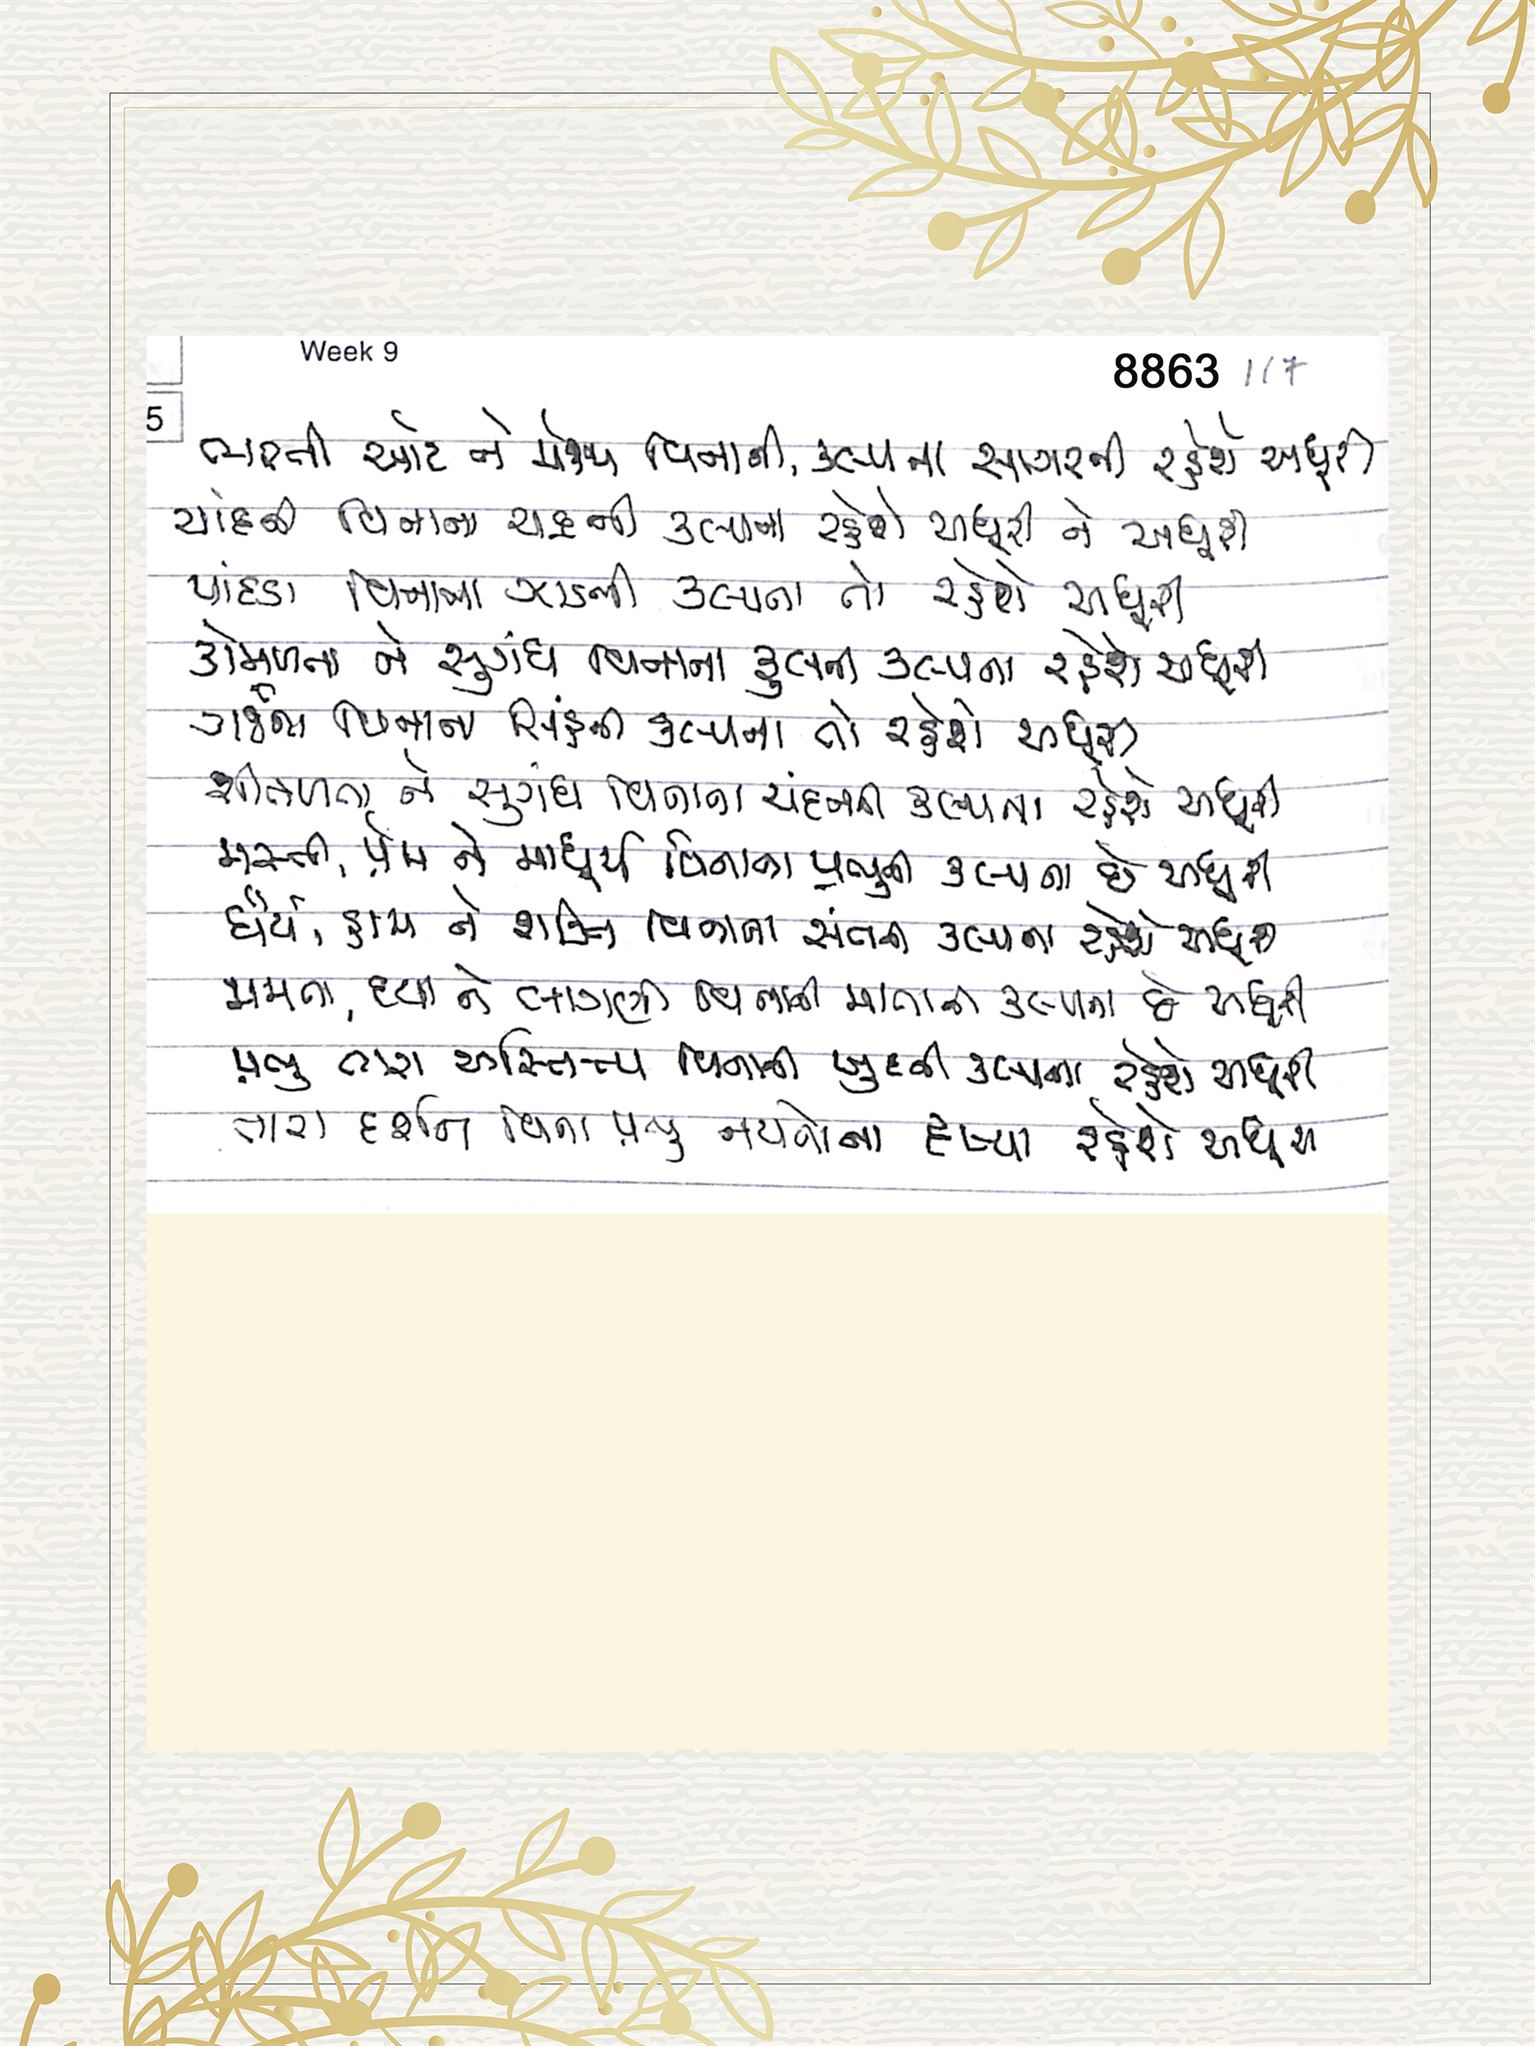 Week 9
8863 1/7
5
ભરતી ઓટ ને મોજા વિનાની, કલ્પના સાગરની રહેશે અધૂરી
ચાંદની વિનાના ચંદ્રની કલ્પના રહેશે અધૂરી ને અધૂરી
પાંદડા વિનાના ઝાડની કલ્પના તો રહેશે અધૂરી
કોમળતા ને સુગંધ વિનાના ફુલની કલ્પના રહેશે અધૂરી
ગર્જના વિનાના સિંહની કલ્પના તો રહેશે અધૂરી
શીતળતા ને સુગંધ વિનાના ચંદનની કલ્પના રહેશે અધૂરી
મસ્તી, પ્રેમ ને માધૂર્ય વિનાના પ્રભુની કલ્પના છે અધૂરી
ધૈર્ય, હામ ને શક્તિ વિનાના સંતની કલ્પના રહેશે અધૂરી
મમતા, દયા ને લાગણી વિનાની માતાની કલ્પના છે અધૂરી
પ્રભુ તારા અસ્તિત્વ વિનાની ખુદની કલ્પના રહેશે અધૂરી
તારા દર્શન વિના પ્રભુ નયનોના હૈયા રહેશે અધૂરા